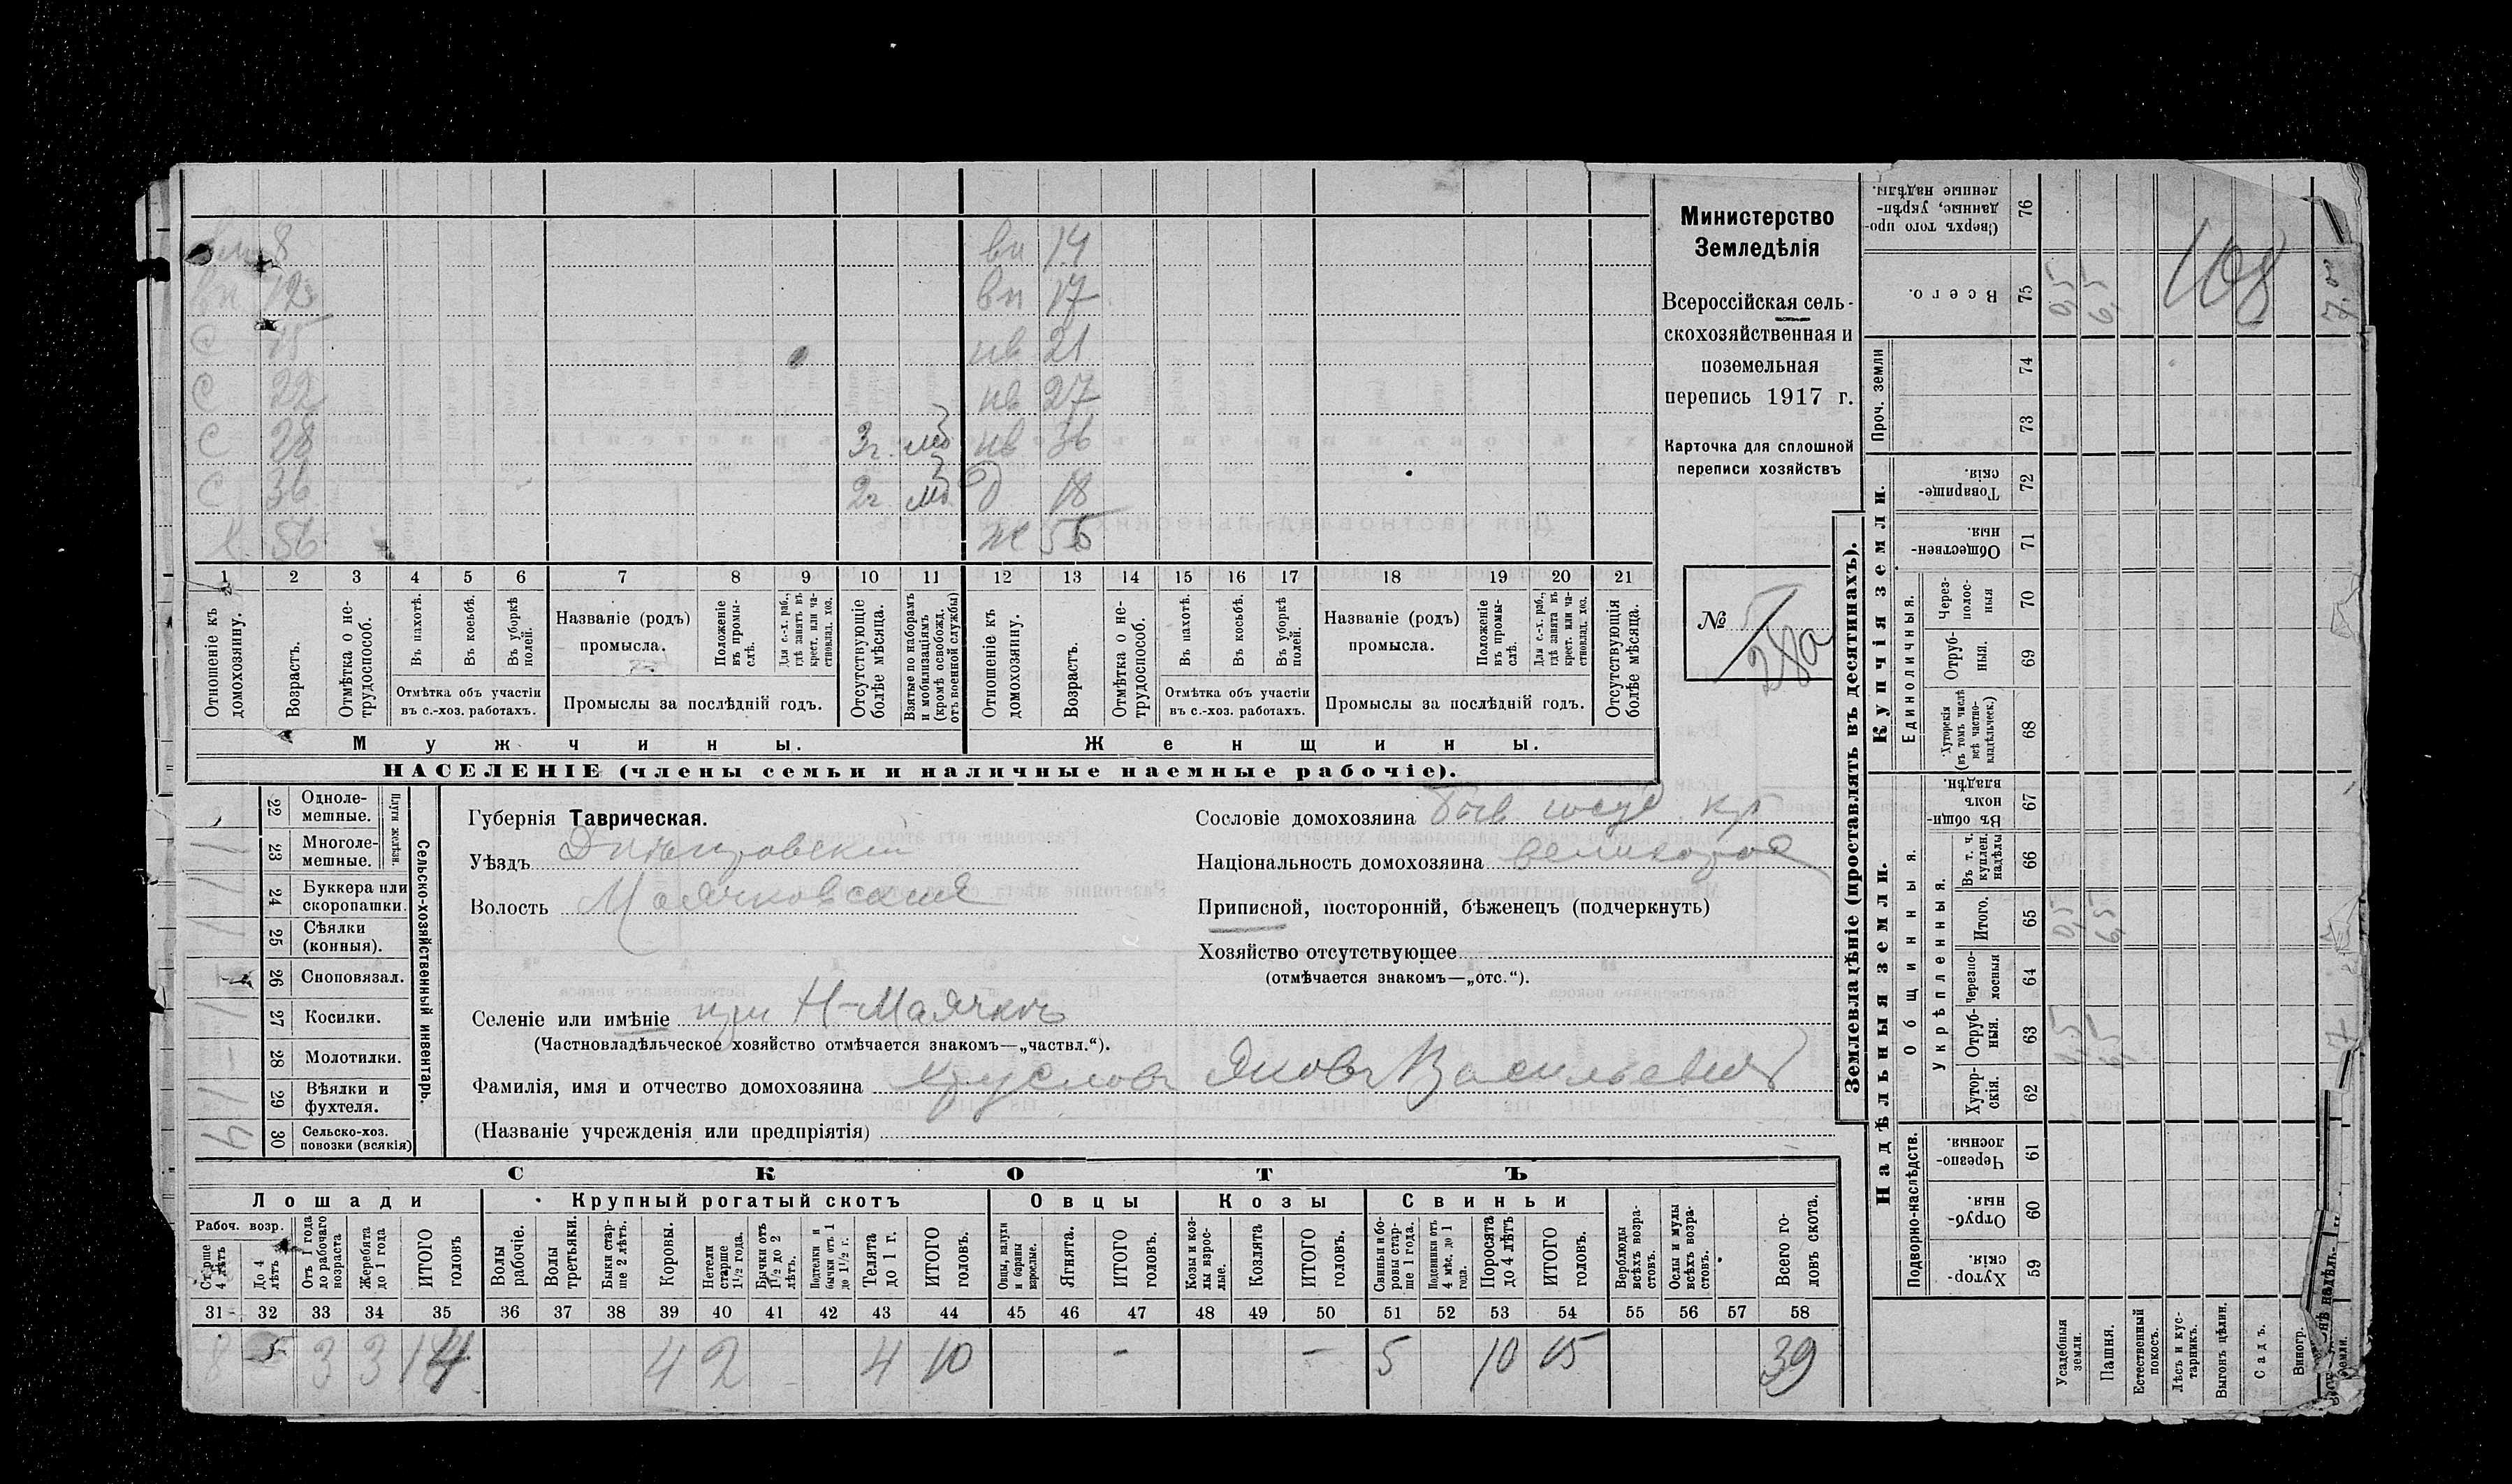 вн 14
вн. 12 вн 17
С 45 нв 21
С 22 нв 27
С 28 3г. мб нв 36
С 36 2г. мб. д. 18
х. 56 же 55
1 2 3 4 5 6 7 8 9 10 11 12 13 14 15 16 17 18 19 20 21
Отношеніе къ домохозяину.
Возрастъ.
Отмѣтка о не-трудоспособ.
Въ пахотѣ.
Въ косьбѣ.
Въ уборкѣ полей.
Отмѣтка объ участіи
въ с.-хоз. работахъ.
Названіе (родъ)
промысла.
Положеніе въ промы-слѣ.
Для с.-х. раб., гдѣ занятъ въ крест. или ча-стновлад. хоз.
Промыслы за послѣдній годъ.
Отсутствующіе болѣе мѣсяца.
Взятые по наборамъ и мобилизаціямъ (кромѣ освобожд. отъ военной службы)
Отношеніе къ домохозяину.
Возрастъ.
Отмѣтка о не-трудоспособ.
Въ пахотѣ.
Въ косьбѣ.
Въ уборкѣ полей.
Отмѣтка объ участіи
въ с.-хоз. работахъ.
Названіе (родъ)
промысла.
Положеніе въ промы-слѣ.
Для с.-х. раб., гдѣ занята въ крест. или ча-стновлад. хоз.
Промыслы за послѣдній годъ.
Отсутствующія болѣе мѣсяца.
Мужчины.
Женщины.
НАСЕЛЕНІЕ (члены семьи и наличные наемные рабочіе).
Министерство
Земледѣлія
Всероссійская сель-
скохозяйственная и
поземельная
перепись 1917 г.
Карточка для сплошной
переписи хозяйствъ
№ 28а
22 Одноле-мешные.
23 Многоле-мешные.
Плуги желѣзн.
24 Буккера или скоропашки.
25 Сѣялки (конныя).
26 Сноповязал.
27 Косилки.
28 Молотилки.
29 Вѣялки и фухтеля.
30 Сельско-хоз. повозки (всякія)
Сельско-хозяйственный инвентарь.
Губернія Таврическая.
Уѣздъ Днѣпровскій
Волость Маячковская
Селеніе или имѣніе при Н-Маячкѣ
(Частновладѣльческое хозяйство отмѣчается знакомъ—„частвл.“).
Фамилія, имя и отчество домохозяина Яковъ Васильевич
(Названіе учрежденія или предпріятія)
Сословіе домохозяина быв. госуд. кр
Національность домохозяина великоросс
Приписной, посторонній, бѣженецъ (подчеркнуть)
Хозяйство отсутствующее
(отмѣчается знакомъ—„отс.“).
СКОТЪ
Лошади Крупный рогатый скотъ Овцы Козы Свиньи
Рабоч. возр.
Старше 4 лѣтъ
До 4 лѣтъ
Отъ 1 года до рабочаго возраста
Жеребята до 1 года
ИТОГО головъ
Волы рабочіе.
Волы третьяки.
Быки стар-ше 2 лѣтъ.
Коровы.
Нетели старше 1½ года.
Бычки отъ 1½ до 2 лѣтъ.
Подтелки и бычки отъ 1 до 1½ г.
Телята до 1 г.
ИТОГО головъ.
Овцы, валухи и бараны взрослые.
Ягнята.
ИТОГО головъ.
Козы и коз-лы взрос-лые.
Козлята
ИТОГО головъ.
Свиньи и бо-ровы стар-ше 1 года.
Подсвинки отъ 4 мѣс. до 1 года.
Поросята до 4 лѣтъ
ИТОГО головъ.
Верблюды всѣхъ возра-стовъ.
Ослы и мулы всѣхъ возра-стовъ.
Всего го-ловъ скота.
31 32 33 34 35 36 37 38 39 40 41 42 43 44 45 46 47 48 49 50 51 52 53 54 55 56 57 58
8 3 3 14 4 2 4 10 - - 5 10 15 39
Землевладѣніе (проставлять въ десятинахъ).
Надѣльныя земли.
Купчія земли.
Проч. земли
Сверхъ того про-данные, укрѣп-ленные надѣлы. 76
Всего. 75
74
73
Товарище-скія. 72
Обществен-ныя. 71
Единоличныя.
Через-полос-ныя 70
Отруб-ныя. 69
Хуторскія (въ томъ числѣ всѣ частно-владѣльческ.) 68
Общинныя.
Въ общин-номъ владѣн. 67
Укрѣпленныя.
Въ т. ч. куплен. надѣлы 66
Итого. 65
Черезпо-лосныя 64
Отруб-ныя. 63
Хутор-скія. 62
Подворно-наслѣдств.
Черезпо-лосныя. 61
Отруб-ныя. 60
Хутор-скія 59
Усадебныя земли.
Пашня.
Естественный покосъ.
Лѣсъ и кус-тарникъ.
Выгонъ цѣлин.
Садъ.
Виногр.
0,5 6,5
0,5 6,5
108